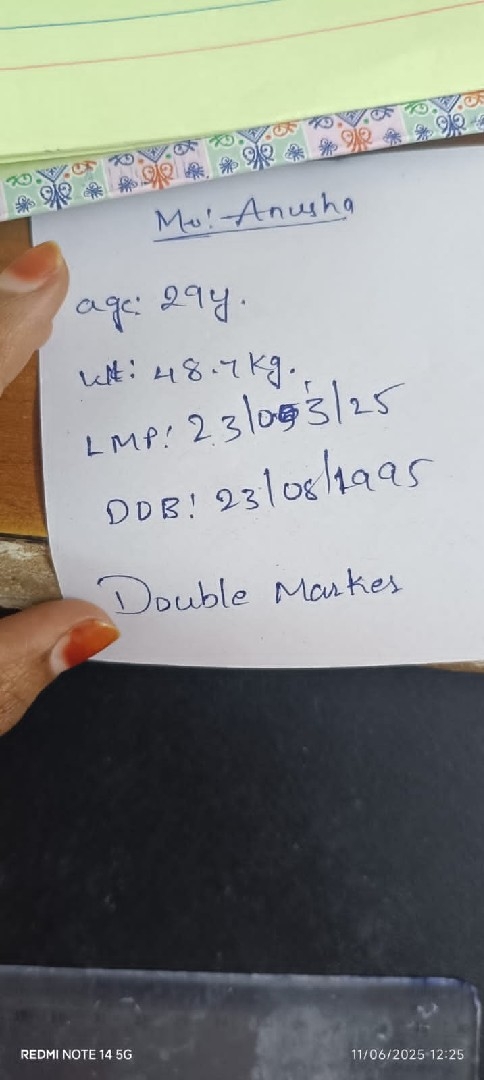 Mv: Anusha
age: 29y.
wt: 48.7 kg.
LMP: 23/03/25
DOB: 23/08/1995
Double Markes
REDMI NOTE 14 5G
11/06/2025 12:25